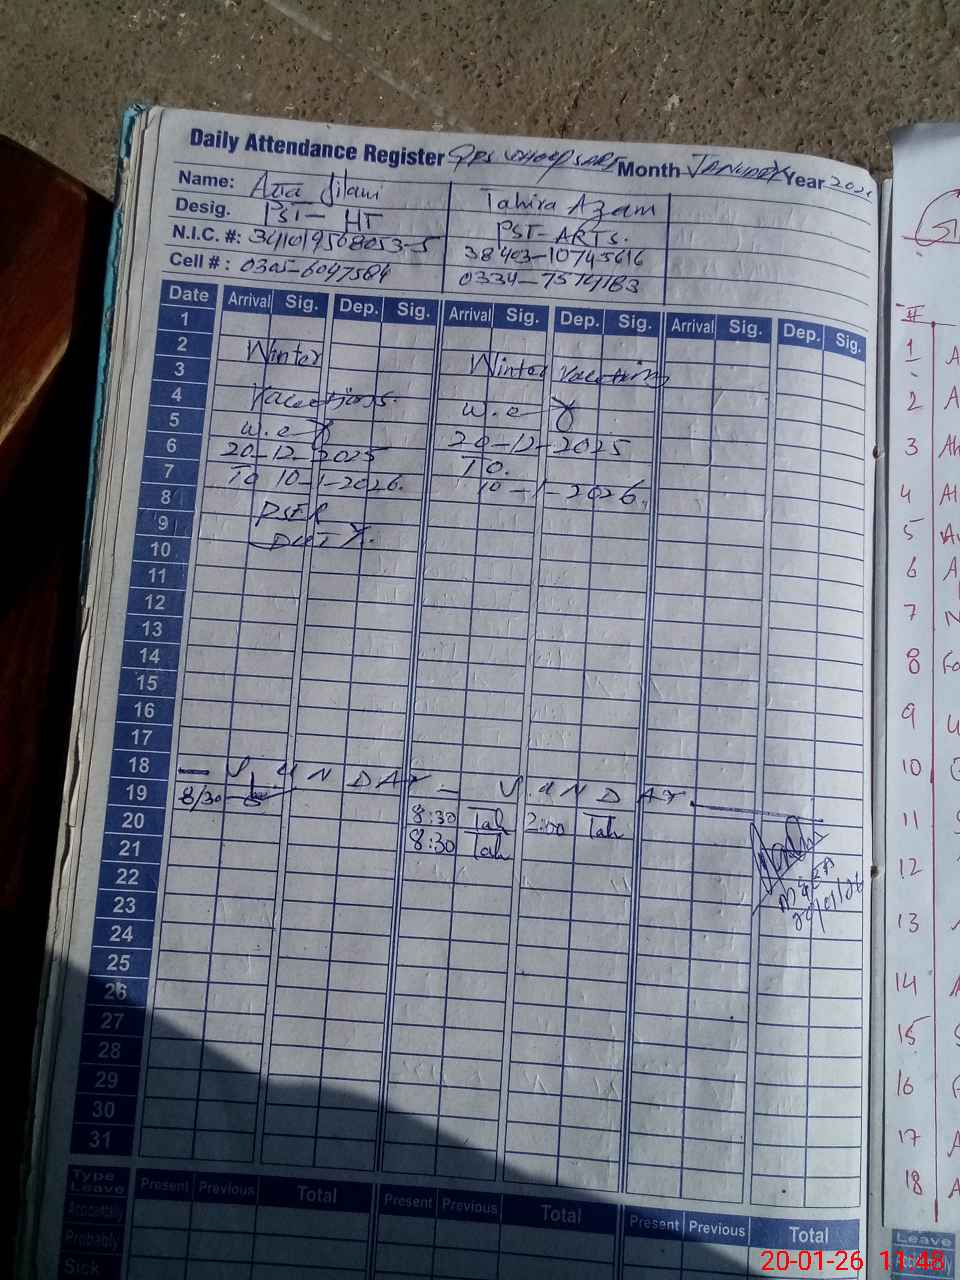 Daily Attendance Register GPS Month JANUARY Year 202
Name: Atta Jilani Tahira Azam
Desig. PST - HT PST-ARTS.
N.I.C. #: 341019568053-5 38403-10745616
Cell #: 0305-6047584 0334-7574183
Date Arrival Sig. Dep. Sig. Arrival Sig. Dep. Sig. Arrival Sig. Dep. Sig.
1
2 Winter
3 Winter Vacations
4 Vacations.
5 w.e.f w.e.f
6 20-12-2025 20-12-2025
7 To 10-1-2026. To.
8 10-1-2026.
9 PSER
10 DUTY.
11
12
13
14
15
16
17
18 — SUNDAY — SUNDAY.
19 8/30
20 8:30 Tah 2:00 Tah
21 8:30 Tah
22
23
24
25
26
27
28
29
30
31
Type Leave Present Previous Total Present Previous Total Present Previous Total
Probably
Sick
#
1
2
3
4
5
6
7
8
9
10
11
12
13
14
15
16
17
18
Leave
20-01-26 11:48